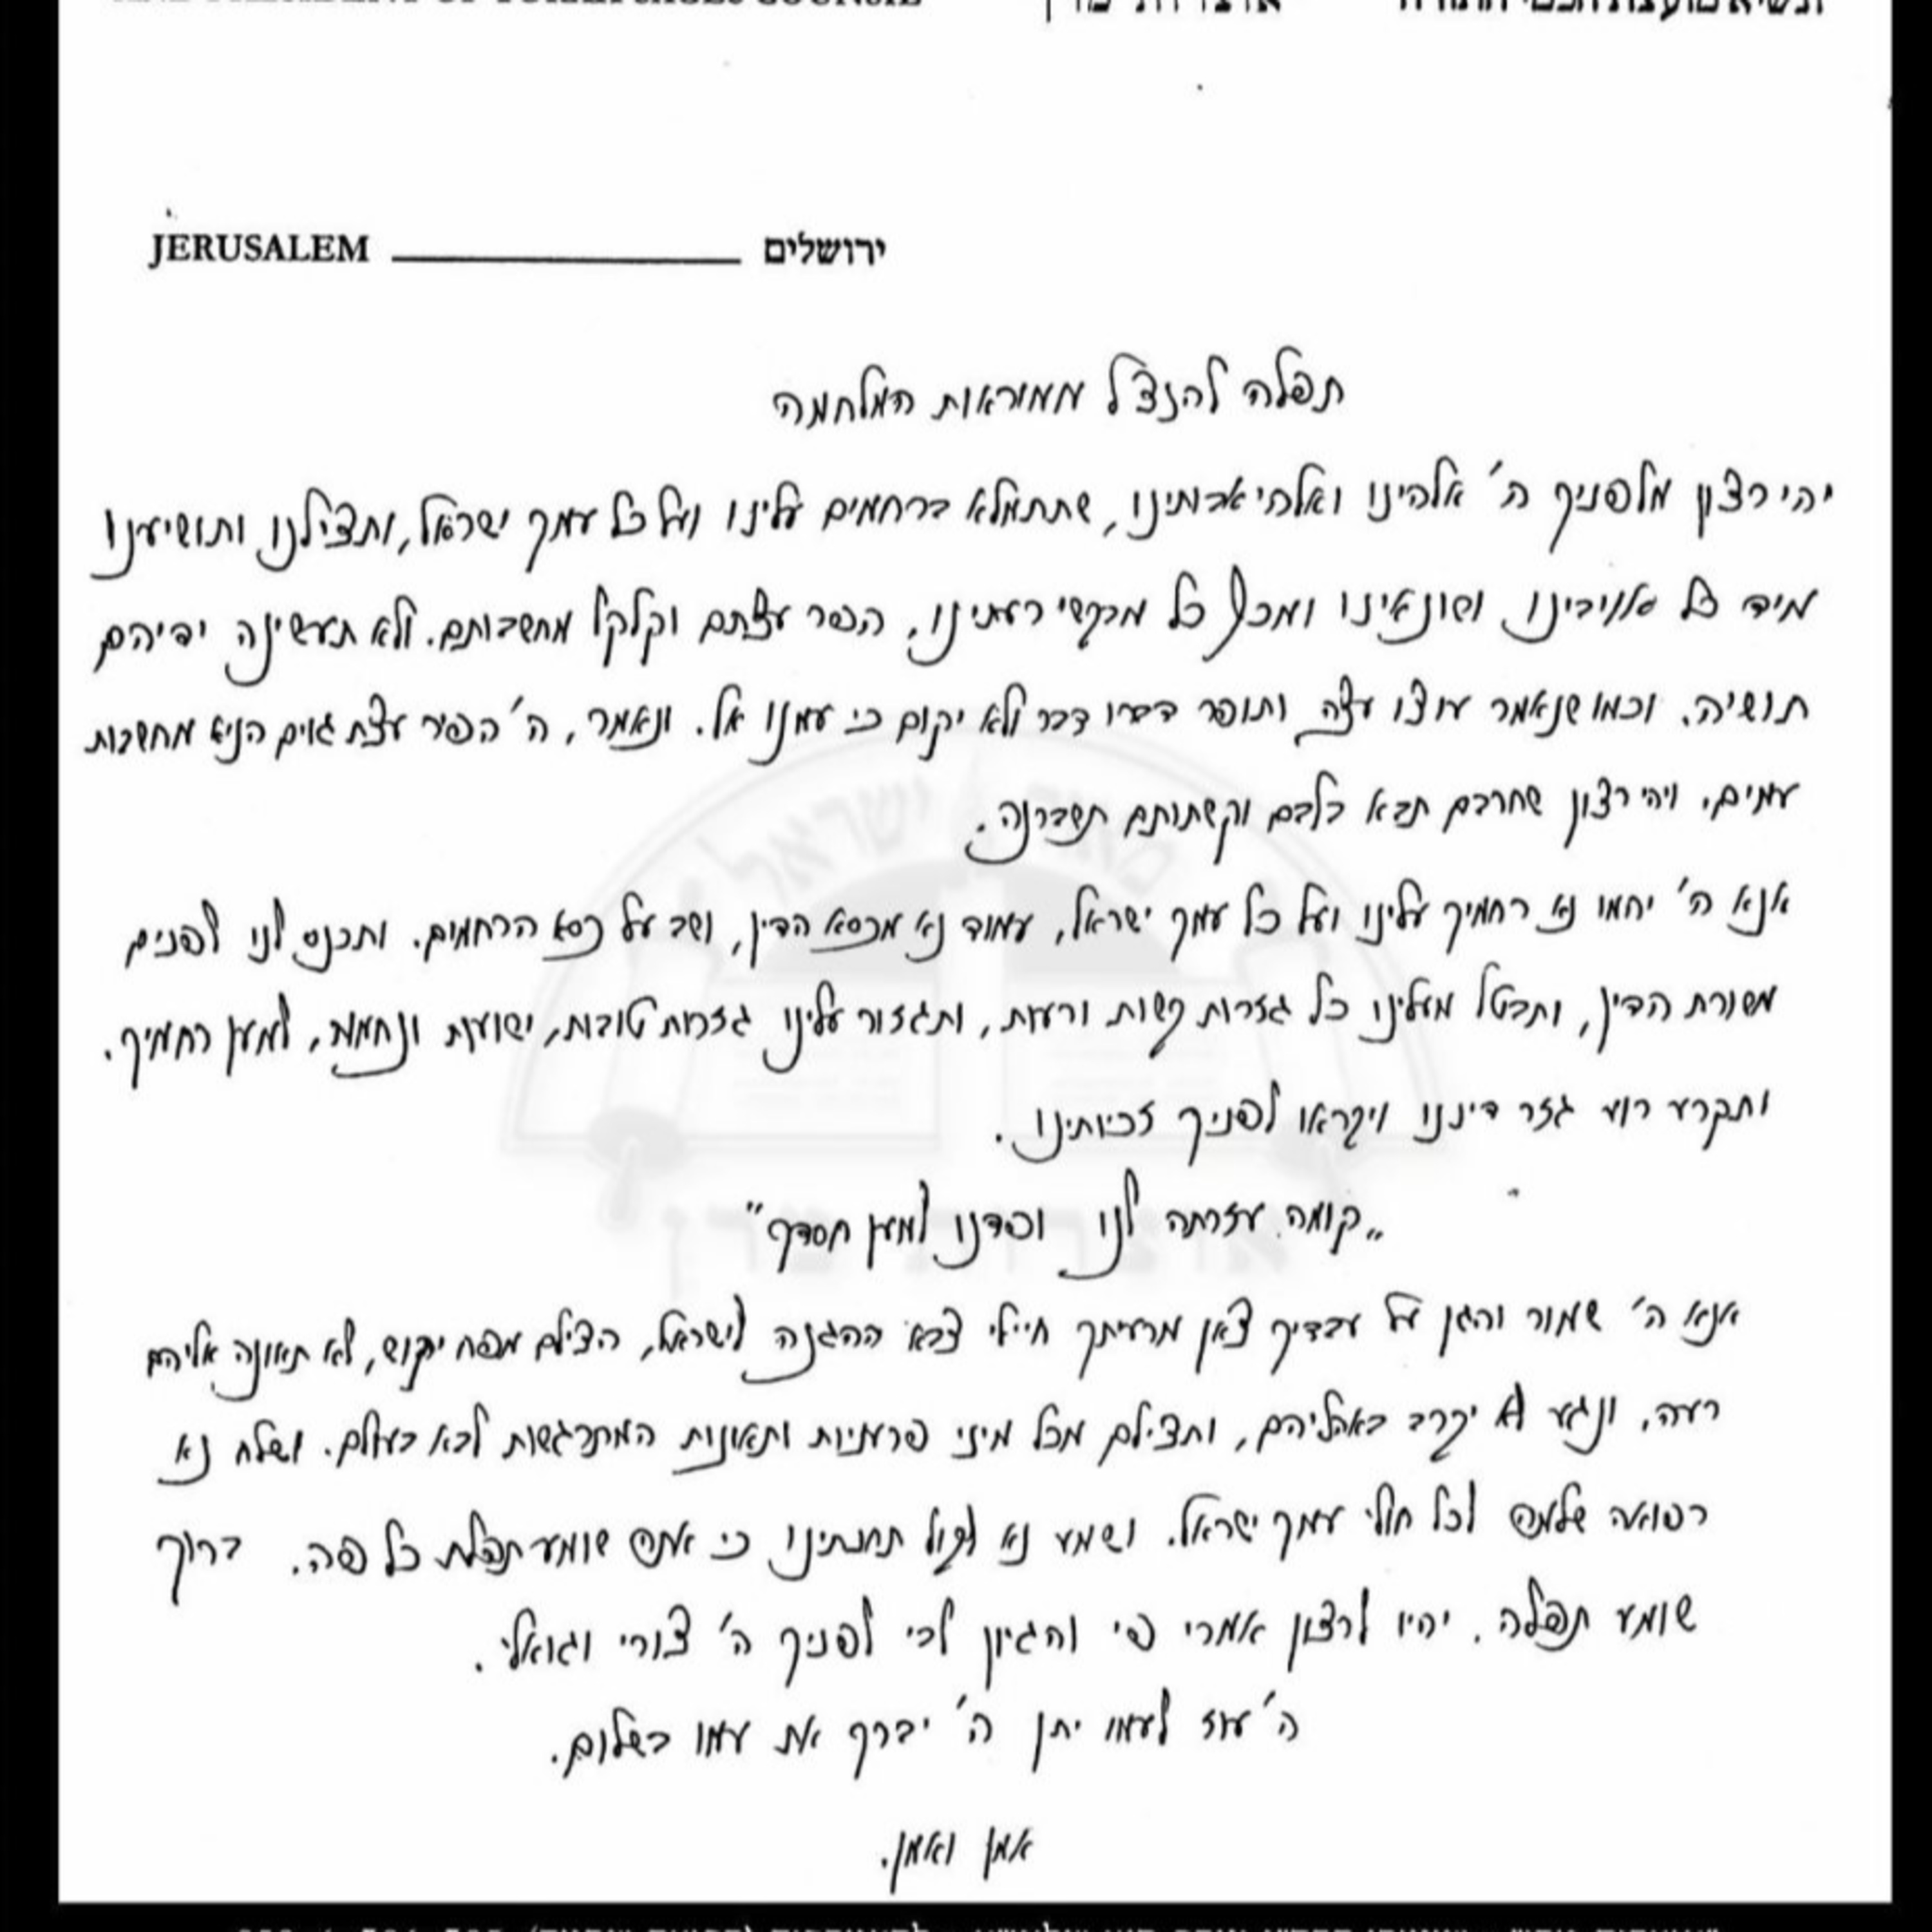 JERUSALEM ירושלים
תפלה להנצל ממוראות המלחמה
יהי רצון מלפניך ה' אלהינו ואלהי אבותינו, שתתמלא ברחמים עלינו ועל כל עמך ישראל, ותצילנו ותושיענו
מיד כל אויבינו ושונאינו ומכף כל מבקשי רעתינו. הפר עצתם וקלקל מחשבותם. ולא תעשינה ידיהם
תושיה. וכמו שנאמר עוצו עצה ותופר דברו דבר ולא יקום כי עמנו אל. ונאמר, ה' הפיר עצת גוים הניא מחשבות
עמים. ויהי רצון שחרבם תבא בלבם וקשתותם תשברנה.
אנא ה' יהמו נא רחמיך עלינו ועל כל עמך ישראל, עמוד נא מכסא הדין, ושב על כסא הרחמים. ותכנס לנו לפנים
משורת הדין, ותבטל מעלינו כל גזרות קשות ורעות, ותגזור עלינו גזרות טובות, ישועות ונחמות, למען רחמיך.
ותקרע רוע גזר דיננו ויקראו לפניך זכיותינו.
„קומה עזרתה לנו ופדנו למען חסדך"
אנא ה' שמור והגן על עבדיך צאן מרעיתך חיילי צבא ההגנה לישראל, הצילם מפח יקוש, לא תאונה אליהם
רעה, ונגע לא יקרב באהליהם, ותצילם מכל מיני פרעניות ותאונות המתרגשות לבא בעולם. ושלח נא
רפואה שלמה לכל חולי עמך ישראל. ושמע נא לקול תחנתינו כי אתה שומע תפלת כל פה. ברוך
שומע תפלה. יהיו לרצון אמרי פי והגיון לבי לפניך ה' צורי וגואלי.
ה' עוז לעמו יתן ה' יברך את עמו בשלום.
אמן ואמן.